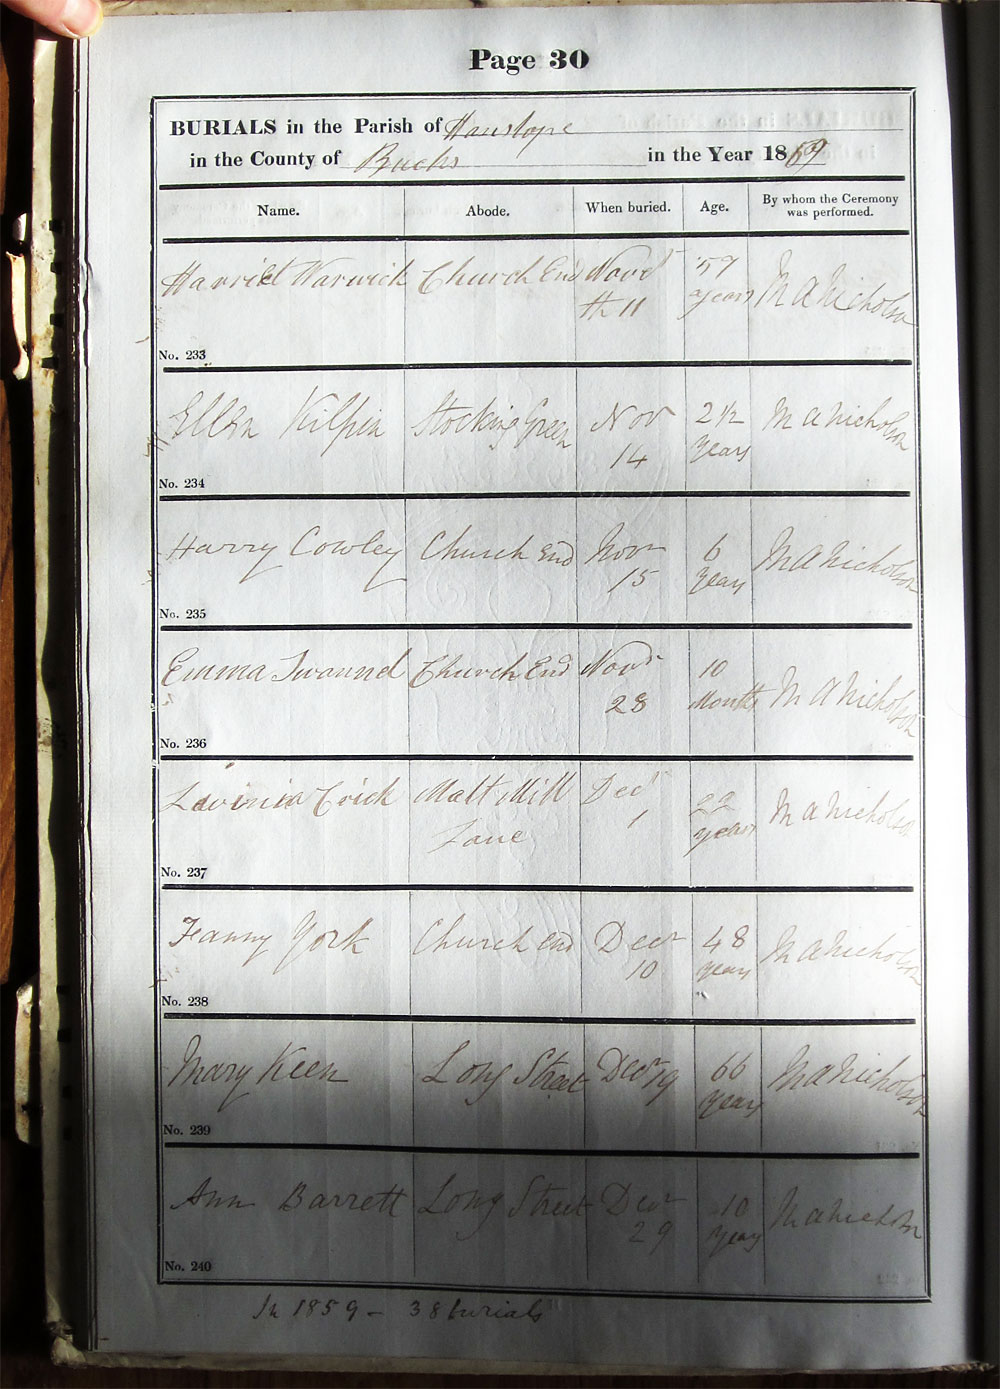 Page 30
BURIALS in the Parish of Hanslope
in the County of Bucks in the Year 1859
Name. Abode. When buried. Age. By whom the Ceremony was performed.
Harriet Warwick Church End Novr 59
th 11 years M A Nicholson
No. 233
Ellen Kilpin Stocking Green Nov 2 1/2 M A Nicholson
14 years
No. 234
Harry Cowley Church End Novr 6 M A Nicholson
15 years
No. 235
Emma Church End Novr 10
28 Months M A Nicholson
No. 236
Lavinia Crick Malt Mill Decr 22 M A Nicholson
Lane 1 years
No. 237
Fanny York Church End Decr 48 M A Nicholson
10 years
No. 238
Mary Keen Long Street Decr 19 66 M A Nicholson
years
No. 239
Ann Barrett Long Street Decr 10 M A Nicholson
29 years
No. 240
In 1859 - 38 burials